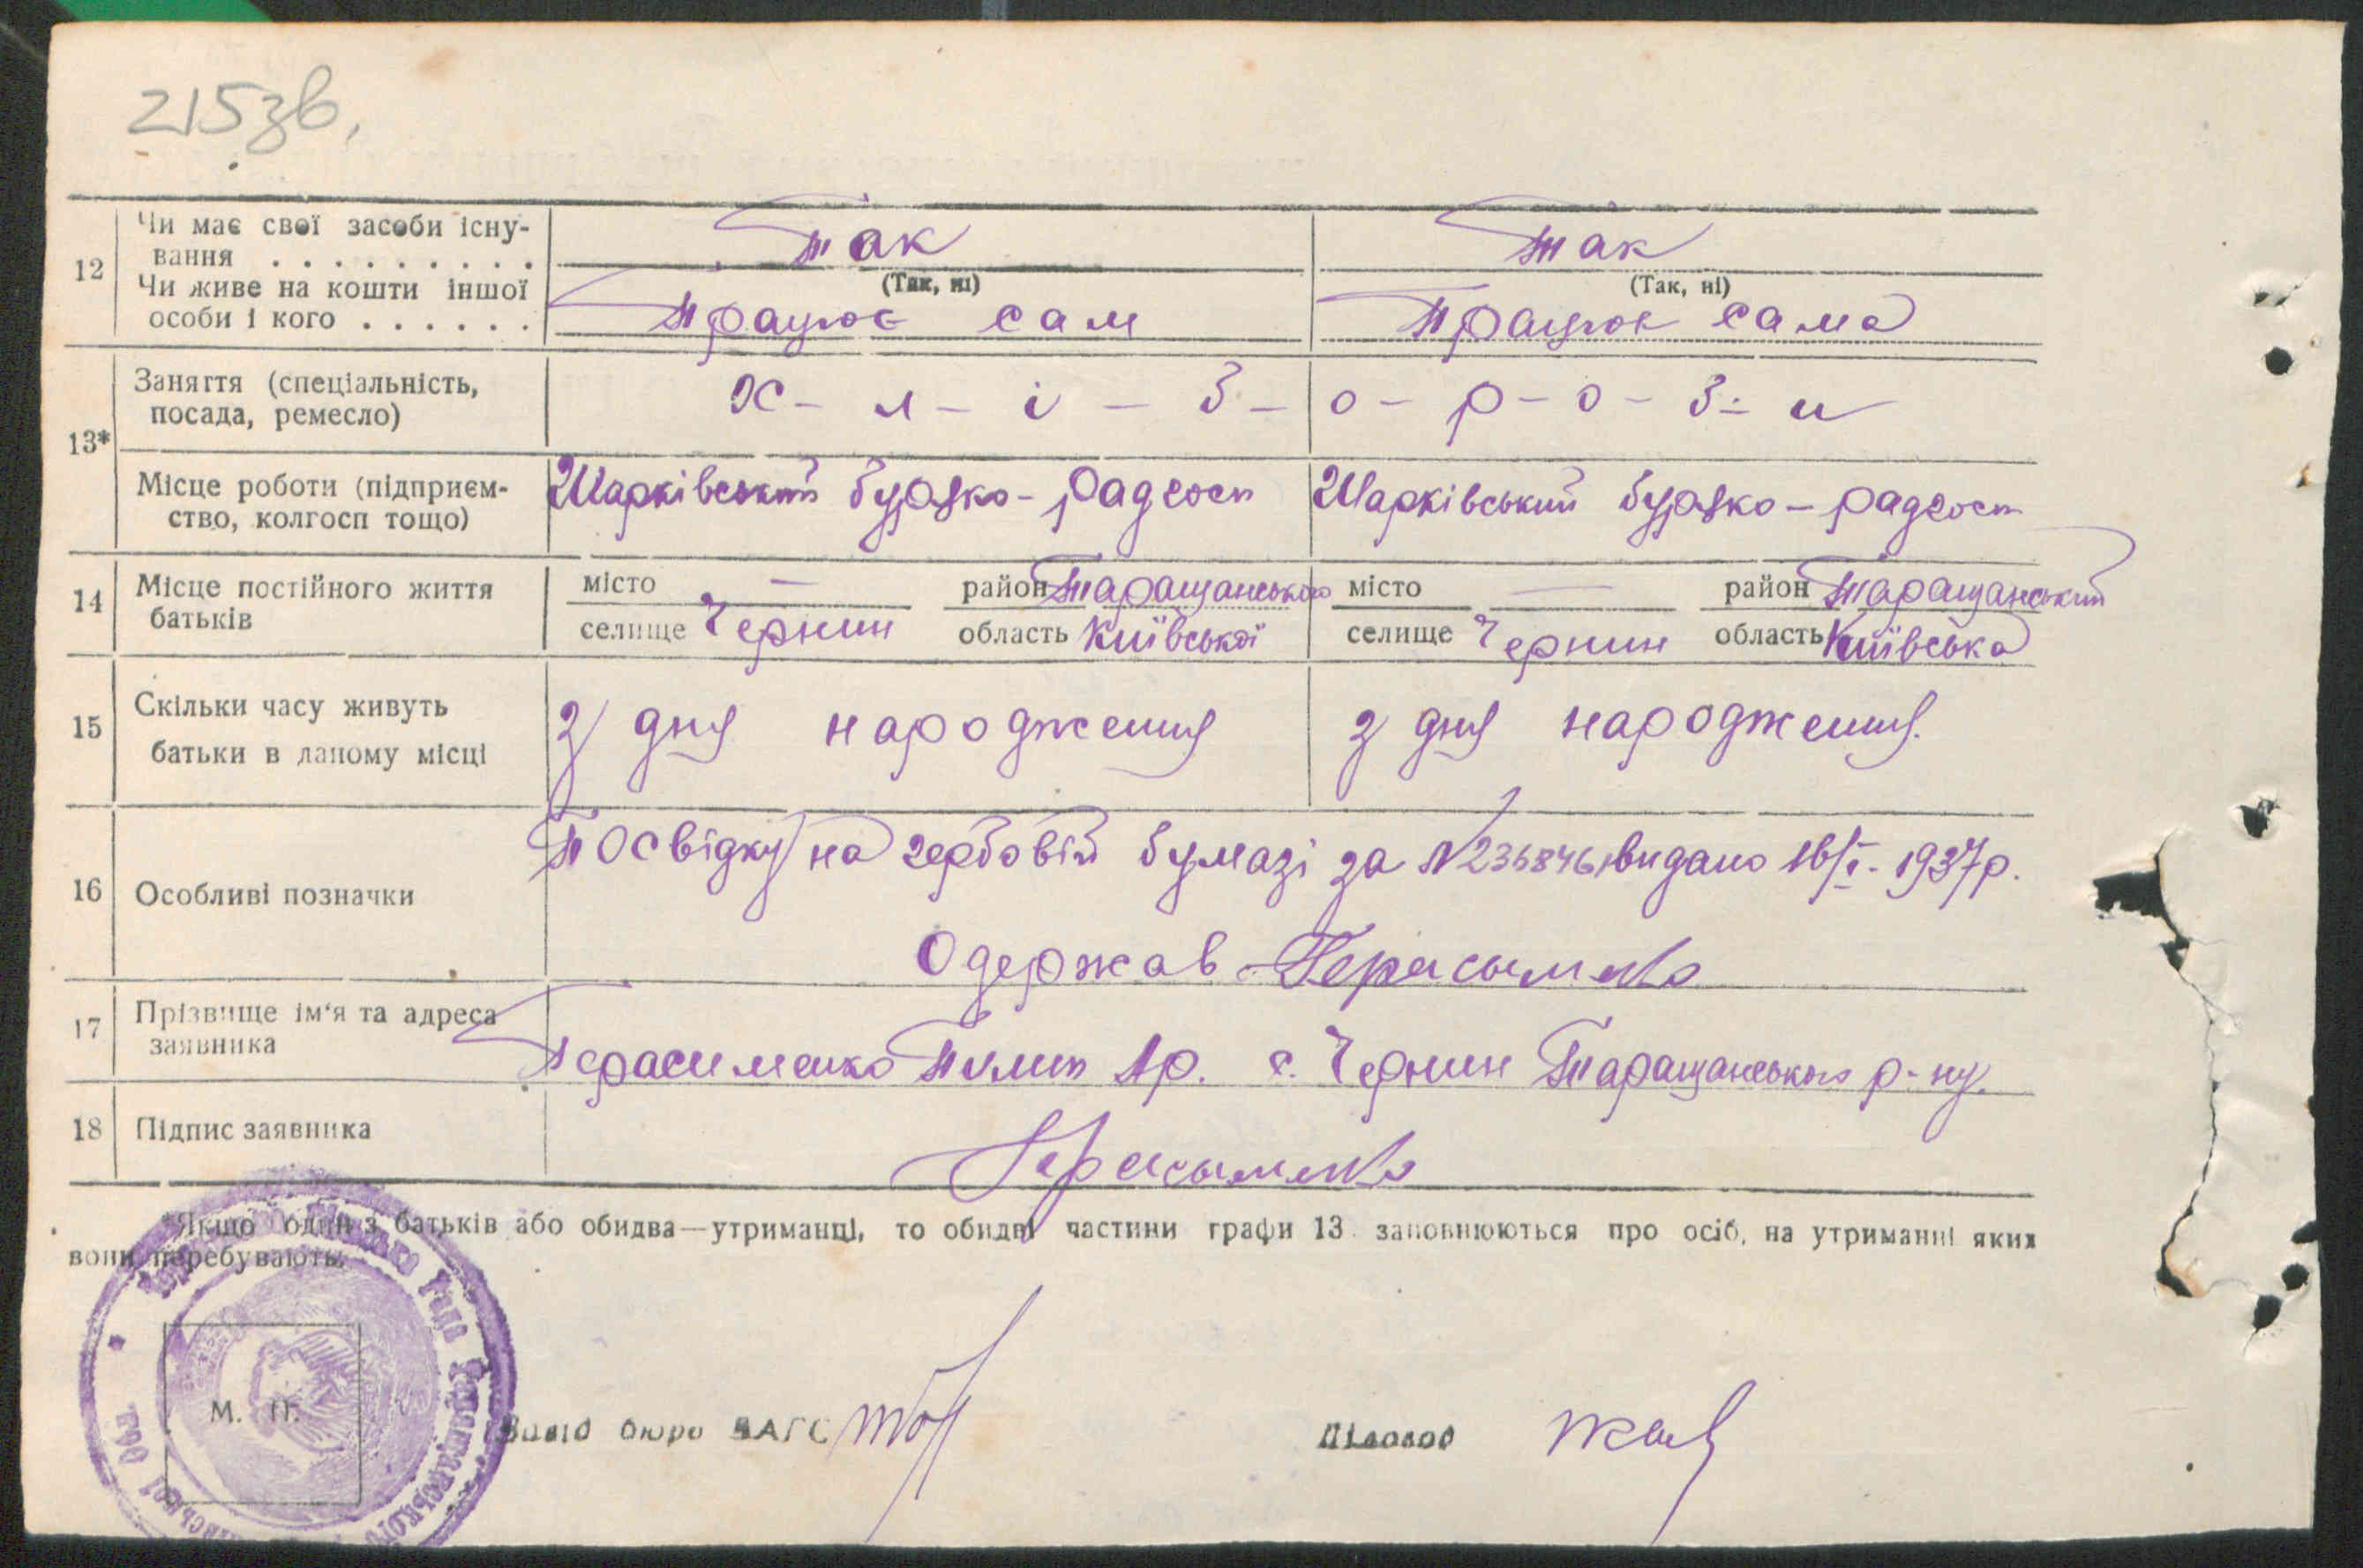 215зв.
12 Чи має свої засоби існу-
вання . . . . . . . . . Так Так
(Так, ні) (Так, ні)
Чи живе на кошти іншої
особи і кого . . . . . . Працює сам Працює сама
13* Заняття (спеціальність,
посада, ремесло) Х - л - і - б - о - р - о - б - и
Місце роботи (підприєм-
ство, колгосп тощо) Шарківський буряко-радгосп Шарківський буряко-радгосп
14 Місце постійного життя
батьків місто — район Таращанського місто — район Таращанський
селище Чернин область Київської селище Чернин область Київська
15 Скільки часу живуть
батьки в даному місці з дня народження з дня народження.
16 Особливі позначки Посвідку на гербовій бумазі за № 2368461 видано 16/I - 1937р.
Одержав Герасименко
17 Прізвище ім'я та адреса
заявника Герасименко Пилип Ар. с. Чернин Таращанського р-ну.
18 Підпис заявника Герасименко
*Якщо один з батьків або обидва—утриманці, то обидві частини графи 13 заповнюються про осіб, на утриманні яких
вони перебувають.
М. П.
Завід бюро ЗАГС Діловод